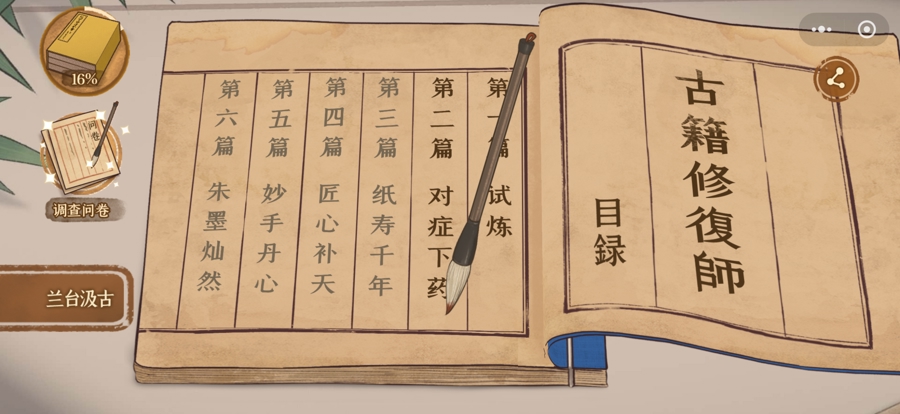 古籍修復師
目録
第一篇 试炼
第二篇 对症下药
第三篇 纸寿千年
第四篇 匠心补天
第五篇 妙手丹心
第六篇 朱墨灿然
16%
问卷
调查问卷
兰台汲古